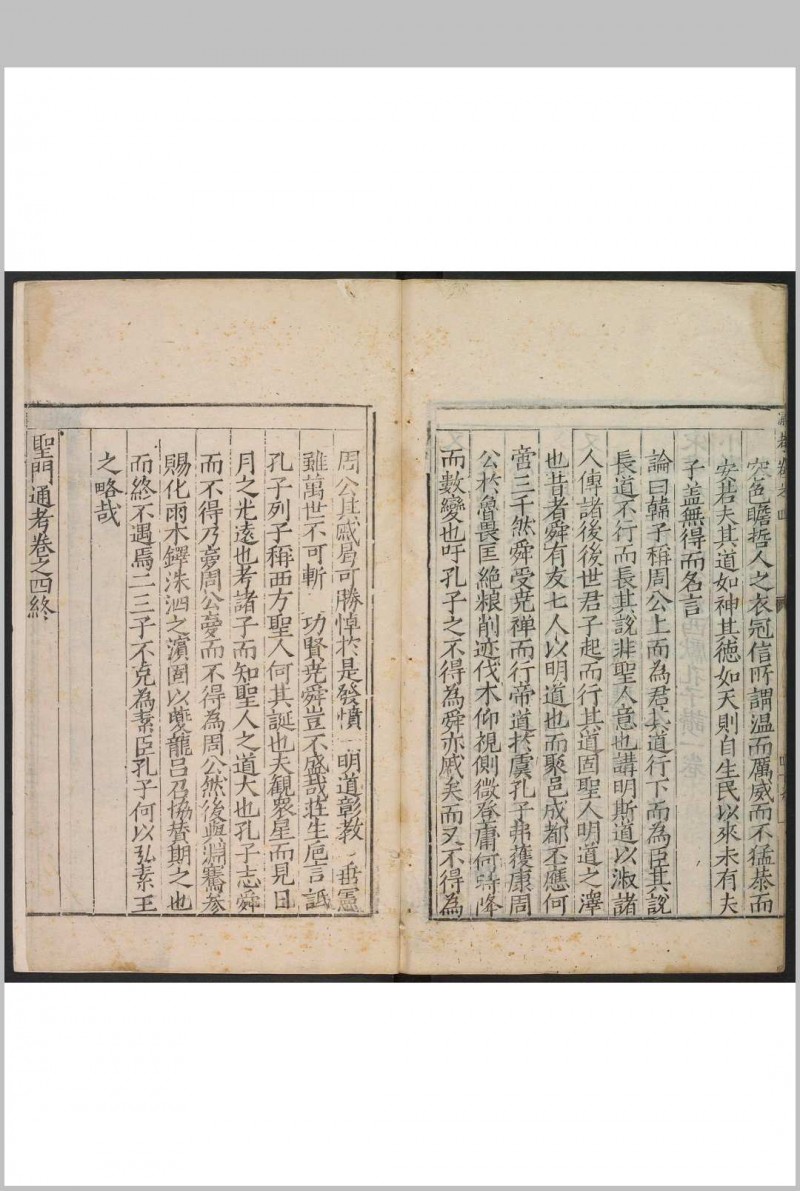 容色瞻哲人之衣冠信所謂温而厲威而不猛恭而
安若夫其道如神其徳如天則自生民以來未有夫
子盖無得而名言
論曰韓子稱周公上而為君其道行下而為臣其說
長道不行而長其說非聖人意也講明斯道以淑諸
人傳諸後後世君子起而行其道固聖人明道之澤
也昔者舜有友七人以明道也而聚邑成都丕應何
啻三千然舜受尭禅而行帝道於虞孔子弗獲康周
公於魯畏匡絶粮削迹伐木仰視側微登庸何
而數變也吁孔子之不得為舜亦戚矣而又不得為
周公其戚曷可勝悼於是發憤 明道彰教 垂憲
雖萬世不可斬 功賢尭舜豈不盛哉莊生巵言詆
孔子列子稱西方聖人何其誕也夫観衆星而見日
月之光遠也考諸子而知聖人之道大也孔子志舜
而不得乃夢周公夢而不得為周公然後與淵騫參
賜化雨木鐸洙泗之濵固以夔龍吕召協賛期之也
而終不遇焉二三子不克為素臣孔子何以弘素王
之略哉
聖門通考卷之四終